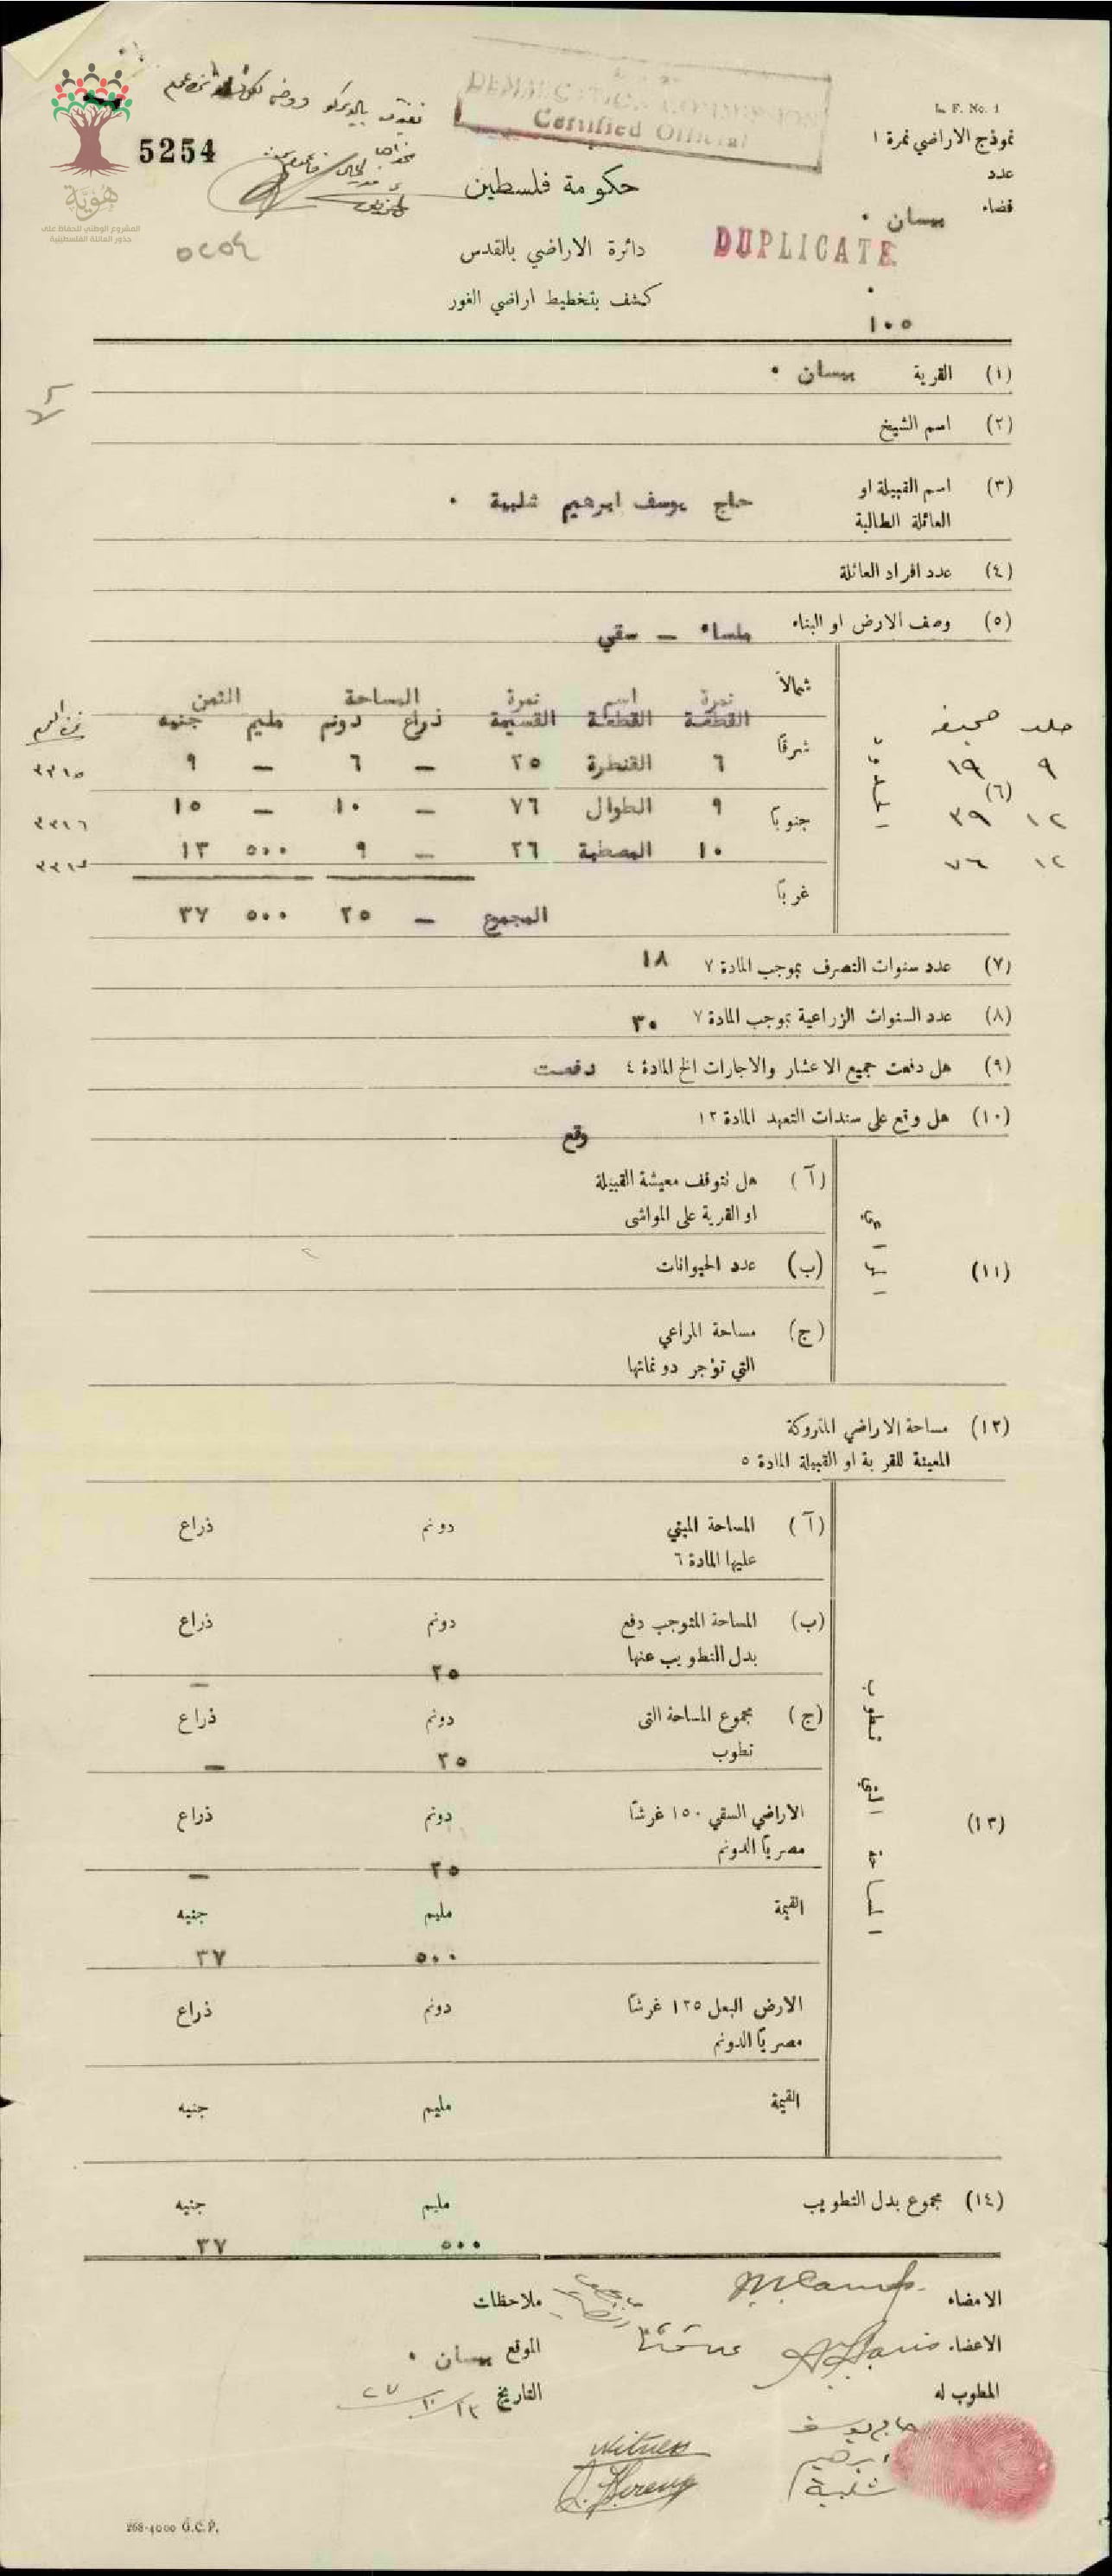 L. F. No. 1
DEMARCATION COMMISSION
Certified Official
نموذج الاراضي نمرة ١
5254
عدد
حكومة فلسطين
قضاء بيسان .
هوية
المشروع الوطني للحفاظ على
جذور العائلة الفلسطينية
٥٢٥٤
DUPLICATE
دائرة الاراضي بالقدس
كشف بتخطيط اراضي الغور
١٠٥
(١) القرية بيسان .
(٢) اسم الشيخ
(٣) اسم القبيلة او
العائلة الطالبة
حاج يوسف ابرهيم شلبية .
(٤) عدد افراد العائلة
(٥) وصف الارض او البناء ملساء – سقي
(٦) الحدود
شمالاً
شرقاً
جنوباً
غرباً
جلد صحيفه
٩ ١٩
١٢ ٣٩
١٢ ٧٦
نمرة القطعة اسم القطعة نمرة القسيمة المساحة ذراع دونم الثمن مليم جنيه
٦ القنطرة ٢٥ – ٦ – ٩
٩ الطوال ٧٦ – ١٠ – ١٥
١٠ المصطبة ٢٦ – ٩ ٥٠٠ ١٣
المجموع – ٢٥ ٥٠٠ ٣٧
(٧) عدد سنوات التصرف بموجب المادة ٧ ١٨
(٨) عدد السنوات الزراعية بموجب المادة ٧ ٣٠
(٩) هل دفعت جميع الاعشار والاجارات الخ المادة ٤ دفعت
(١٠) هل وقع على سندات التعهد المادة ١٢ وقع
(١١) المراعي
(آ) هل تتوقف معيشة القبيلة
او القرية على المواشي
(ب) عدد الحيوانات
(ج) مساحة المراعي
التي تؤجر دونماتها
(١٢) مساحة الاراضي المتروكة
المعينة للقرية او القبيلة المادة ٥
(١٣) المساحة التي تطوب
(آ) المساحة المبني دونم ذراع
عليها المادة ٦
(ب) المساحة المتوجب دفع دونم ذراع
بدل التطويب عنها ٢٥ –
(ج) مجموع المساحة التي دونم ذراع
تطوب ٢٥ –
الاراضي السقي ١٥٠ غرشاً دونم ذراع
مصرياً الدونم ٢٥ –
القيمة مليم جنيه
٥٠٠ ٣٧
الارض البعل ١٢٥ غرشاً دونم ذراع
مصرياً الدونم
القيمة مليم جنيه
(١٤) مجموع بدل التطويب مليم جنيه
٥٠٠ ٣٧
الامضاء
ملاحظات
الاعضاء
الموقع بيسان .
المطوب له
التاريخ
حاج يوسف
ابرهيم
شلبية
Witness
268-4000 G.C.P.